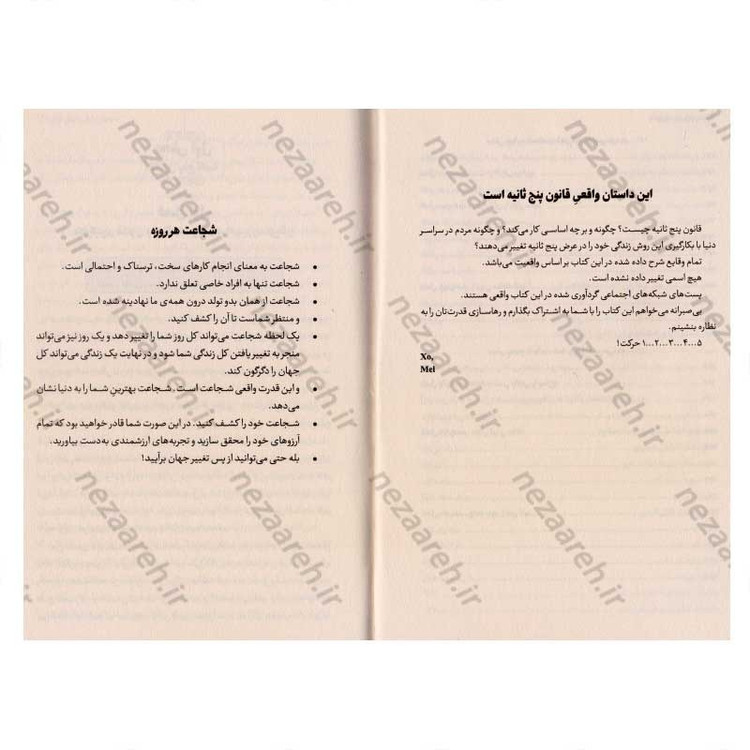 این داستان واقعی قانون پنج ثانیه است
قانون پنج ثانیه چیست؟ چگونه و بر چه اساسی کار می‌کند؟ و چگونه مردم در سراسر
دنیا با بکارگیری این روش زندگی خود را در عرض پنج ثانیه تغییر می‌دهند؟
تمام وقایع شرح داده شده در این کتاب بر اساس واقعیت می‌باشد.
هیچ اسمی تغییر داده نشده است.
پست‌های شبکه‌های اجتماعی گردآوری شده در این کتاب واقعی هستند.
بی‌صبرانه می‌خواهم این کتاب را با شما به اشتراک بگذارم و رهاسازی قدرت‌تان را به
نظاره بنشینم.
۵...۴...۳...۲...۱ حرکت!
Xo,
Mel
شجاعت هر روزه
• شجاعت به معنای انجام کارهای سخت، ترسناک و احتمالی است.
• شجاعت تنها به افراد خاصی تعلق ندارد.
• شجاعت از همان بدو تولد درون همه‌ی ما نهادینه شده است.
• و منتظر شماست تا آن را کشف کنید.
• یک لحظه شجاعت می‌تواند کل روز شما را تغییر دهد و یک روز نیز می‌تواند
منجر به تغییر یافتن کل زندگی شما شود و در نهایت یک زندگی می‌تواند کل
جهان را دگرگون کند.
• و این قدرت واقعی شجاعت است. شجاعت بهترین شما را به دنیا نشان
می‌دهد.
• شجاعت خود را کشف کنید. در این صورت شما قادر خواهید بود که تمام
آرزوهای خود را محقق سازید و تجربه‌های ارزشمندی به‌دست بیاورید.
• بله حتی می‌توانید از پس تغییر جهان برآیید!
nezaareh.ir